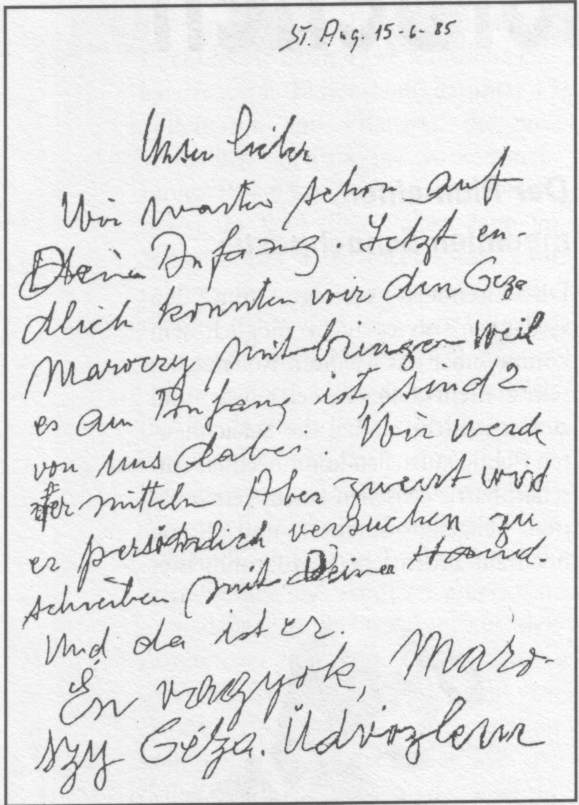 St. Aug. 15-6-85
Unser lieber
Wir warten schon auf
Deinen Anfang Jetzt en-
dlich konnten wir den Geza
Maroczy mit bringen weil
es am Anfang ist, sind 2
von uns daber Wir werde
ver mitteln Aber zuerst wird
er persönlich versuchen zu
schreiben mit Deiner Hand
Und da ist er.
Én vagyok, Máro-
szy Géza. Üdvözlem